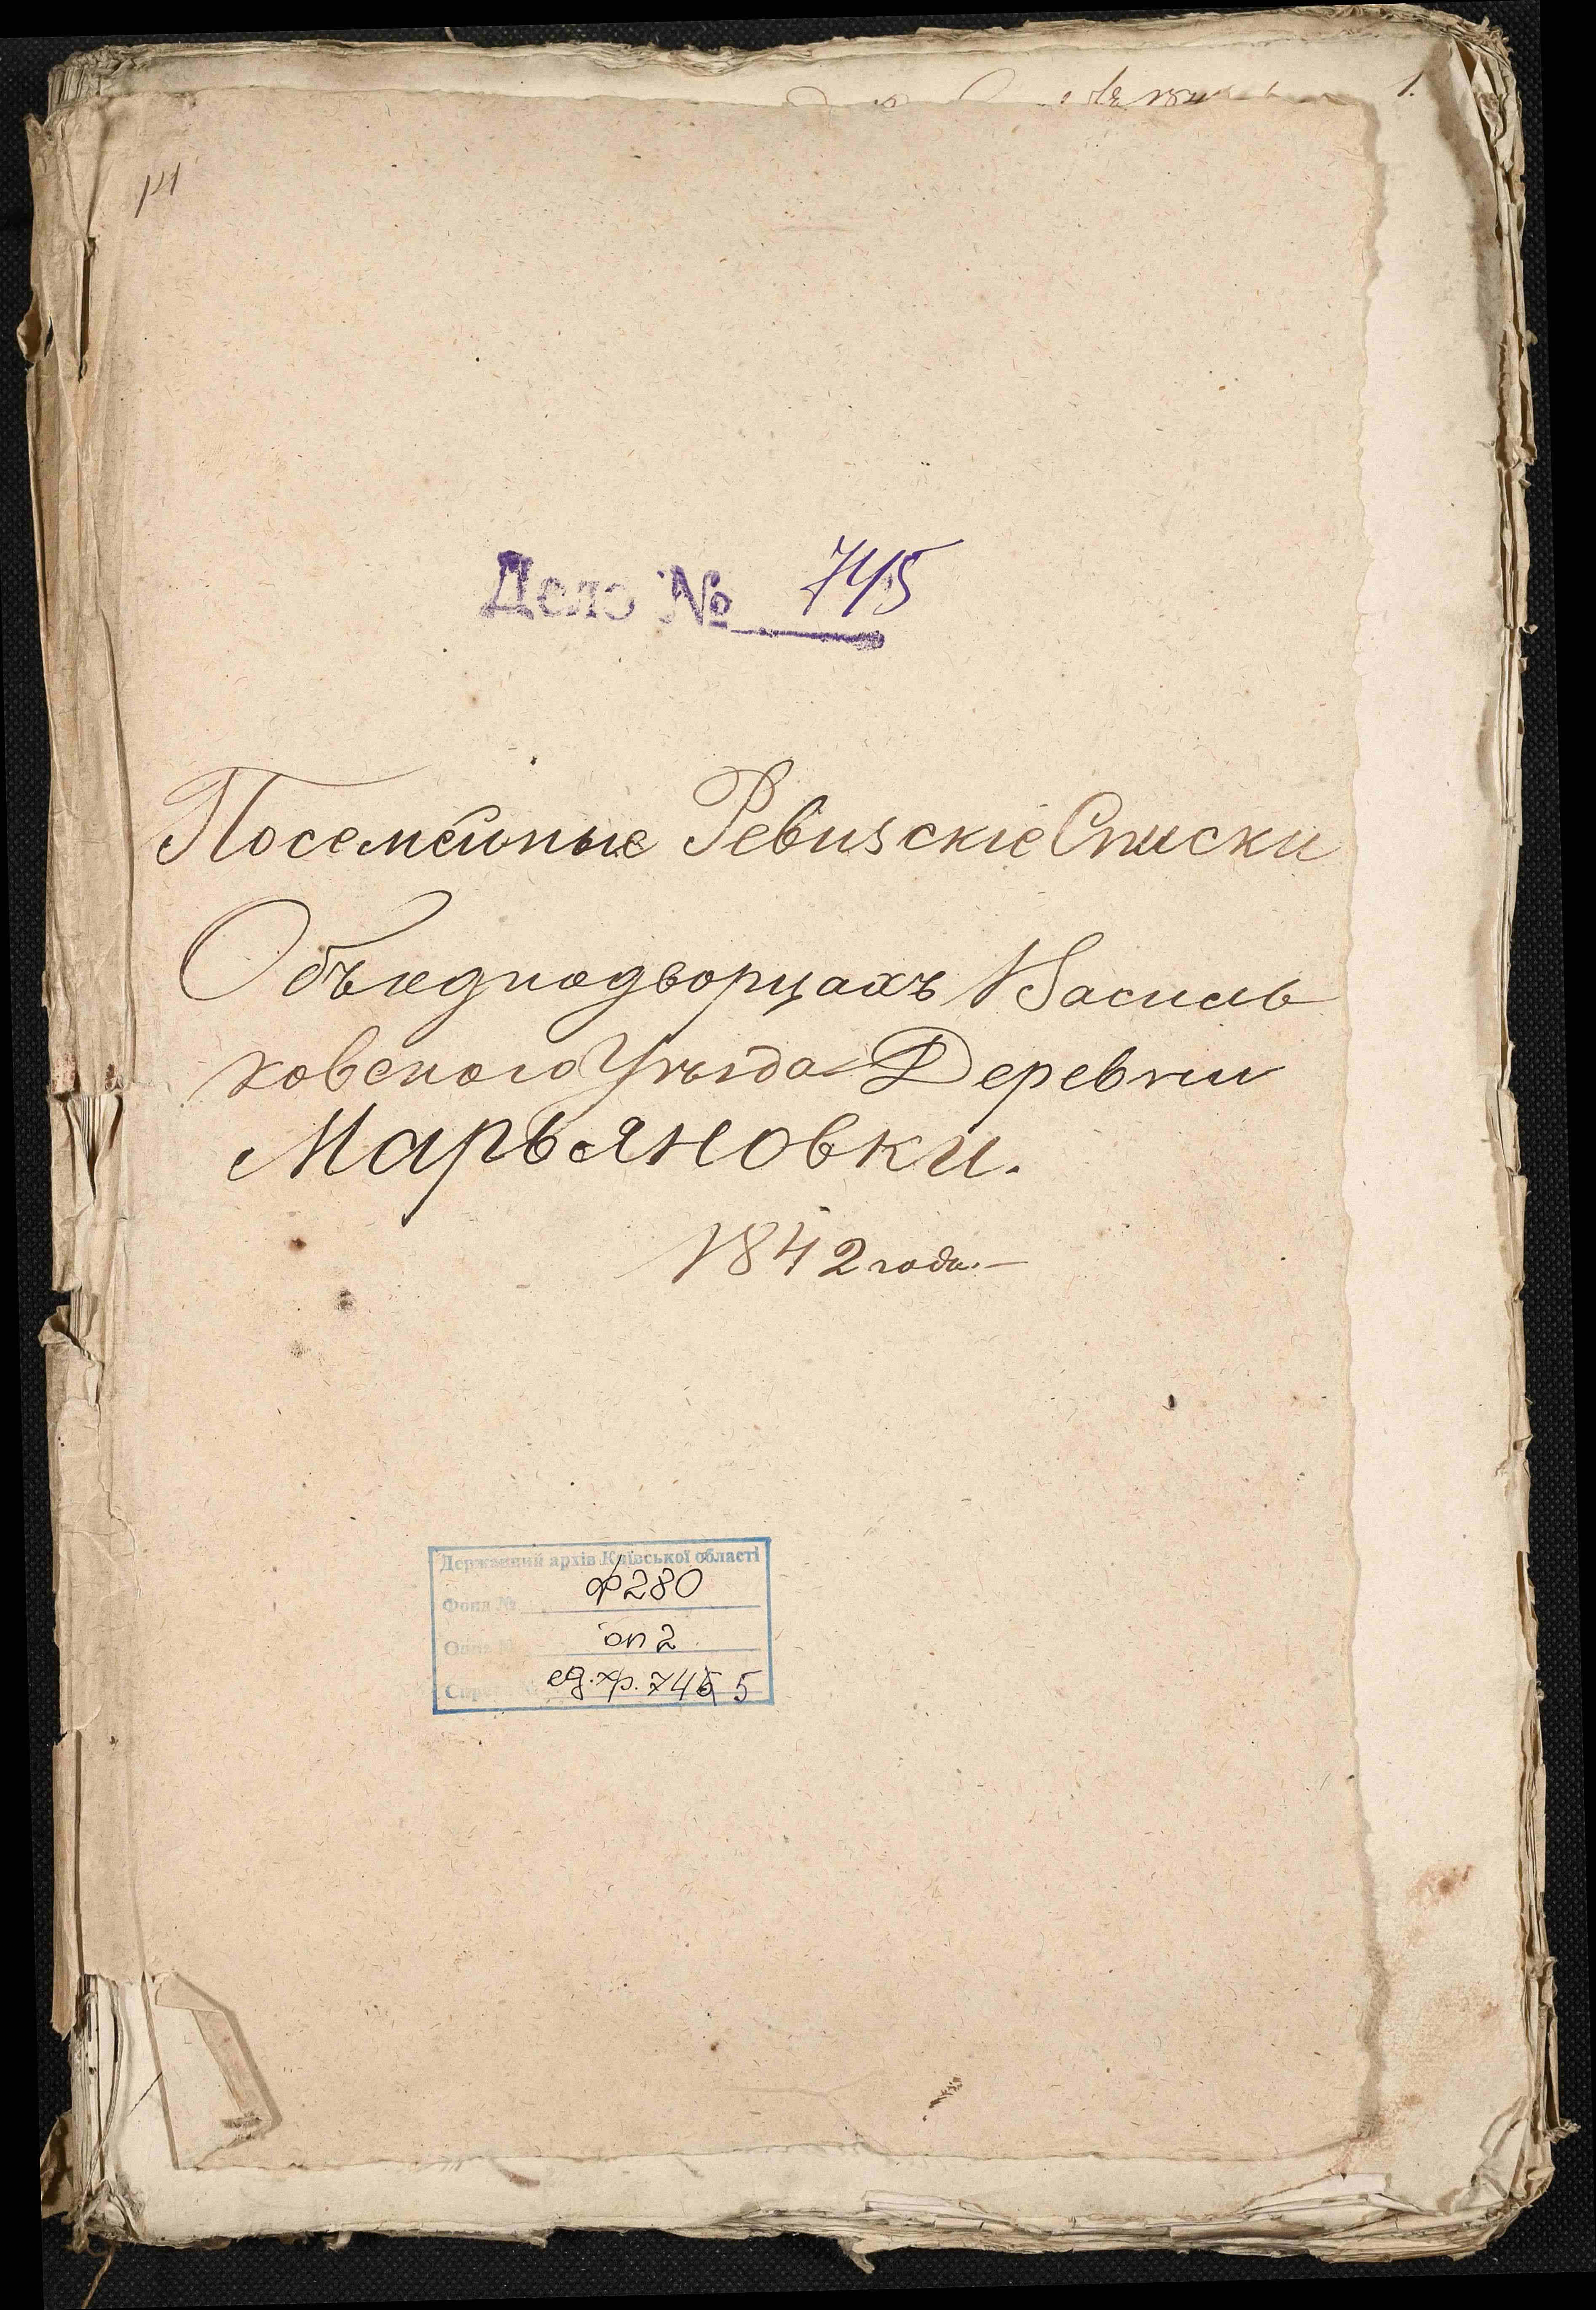 1.
Дело № 745
Посемейные Ревизскіе Списки
Объ однодворцахъ Василь
ковского Уѣзда Деревни
Марьяновки.
1842 года.—
Державний архів Київської області
Фонд № ф 280
Опис № оп 2
Спр. ед. хр. 745 5